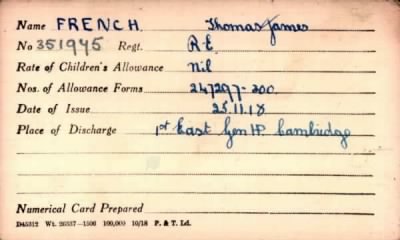 Name FRENCH. Thomas James
No 351945 Regt. R.E.
Rate of Children's Allowance Nil
Nos. of Allowance Forms 247297-300
Date of Issue 25.11.18
Place of Discharge 1st East Gen H. Cambridge
Numerical Card Prepared
D45312 Wt. 26537—1506 100,000 10/18 P. & T. Ld.